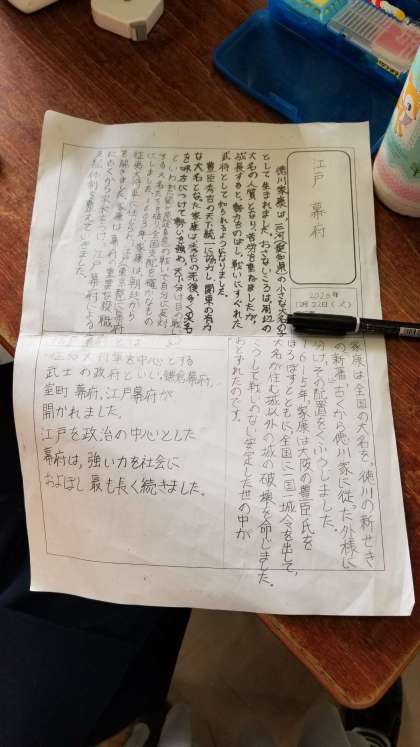 江戸幕府
2026年
12月22日(火)
徳川家康は、三河(愛知県)の小さな大名の子
として生まれました。おさないころは、周辺の
大名の人質となり、苦労を重ねましたが、
成長すると、勢力をのばし、戦いにすぐれた
武将として知られるようになりました。
豊臣秀吉の天下統一に協力し、関東の有力
な大名となった家康は、秀吉の死後、多くの大名
を味方につけて勢いを強め、天下分け目の戦い
といわれる
する大名たちを
にしました。1603年、家康は、朝廷から
征夷大将軍に
を開きました。家康は、幕府の重要な役職
に古くからの家来をつけ、江戸幕府による
支配体制を整えていきました。
家康は全国の大名を、徳川の親せき
の親藩、古くから徳川家に従った外様に
分け、その配置をくふうしました。
1615年、家康は大阪の豊臣氏を
ほろぼすとともに、全国に一国一城令を出して、
大名が住む城以外の城の破壊を命じました。
こうして戦いのない安定した世の中が
おとずれたのです。
を中心とする
武士の政府といい、鎌倉幕府、
室町幕府、江戸幕府が
開かれました。
江戸を政治の中心とした
幕府は、強い力を社会に
およぼし最も長く続きました。